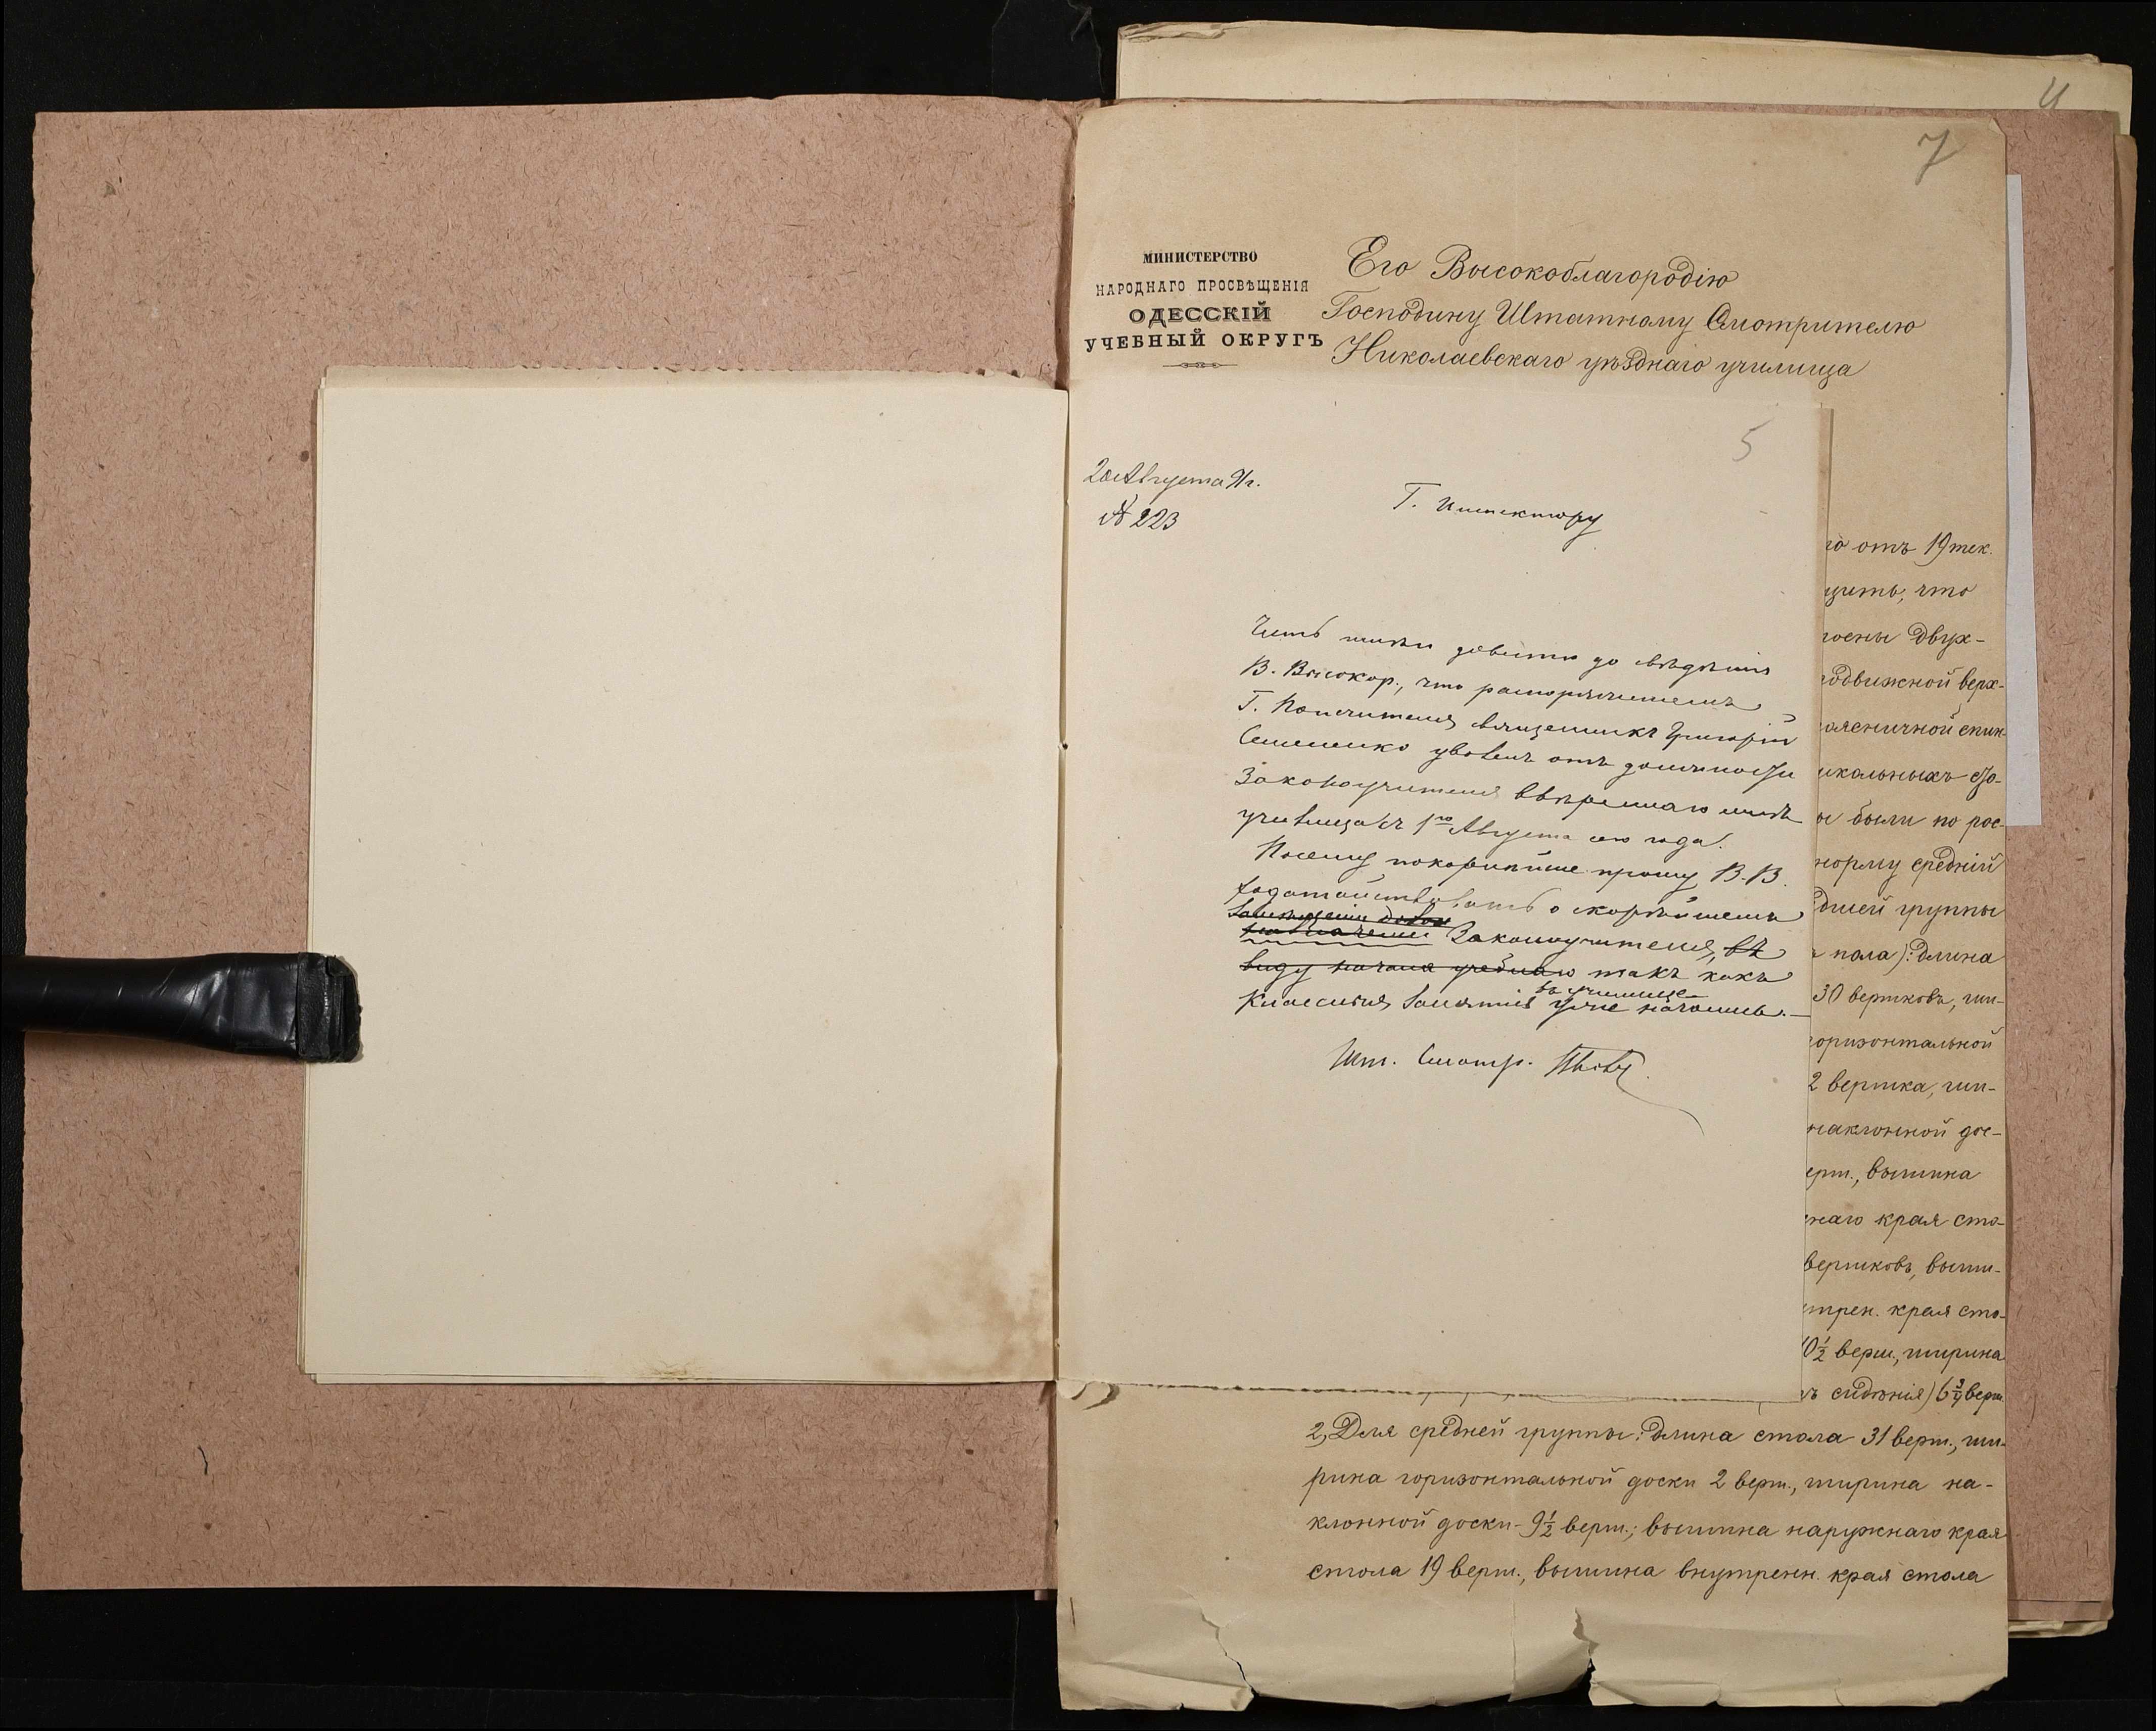 4
7
МИНИСТЕРСТВО
НАРОДНАГО ПРОСВѢЩЕНІЯ
ОДЕССКІЙ
УЧЕБНЫЙ ОКРУГЪ
Его Высокоблагородію
Господину Штатному Смотрителю
Николаевскаго уѣзднаго училища
5
20 Августа 91 г.
№ 223
Г. Инспектору
Честь имѣю довести до свѣдѣнія
В. Высокор., что распоряженіемъ
Г. Попечителя священникъ Григорій
Семененко уволенъ отъ должности
Законоучителя ввѣреннаго мнѣ
училища съ 1го Августа сего года.
Посему покорнѣйше прошу В. В.
ходатайствовать о скорѣйшемъ
замѣщеніи
назначеніи Законоучителя, въ
виду начала учебнаго такъ какъ
въ училище
классныя занятія уже начались.
Шт. Смотр.
го отъ 19 тек.
щить, что
роены двух-
подвижной верх-
оясничной спин-
икольныхъ
ы были по рос-
норму средній
дшей группы
пола): длина
30 вершковъ, ши-
оризонтальной
2 вершка, ши-
наклонной дос-
ерш., вышина
жнаго края сто-
вершковъ, выши-
нтрен. края сто-
10½ верш., ширина
ъ сидѣнія) 6¾ верш.
2, Для средней группы: длина стола 31 верш., ши-
рина горизонтальной доски 2 верш., ширина на-
клонной доски - 9½ верш.; вышина наружнаго края
стола 19 верш., вышина внутренн. края стола